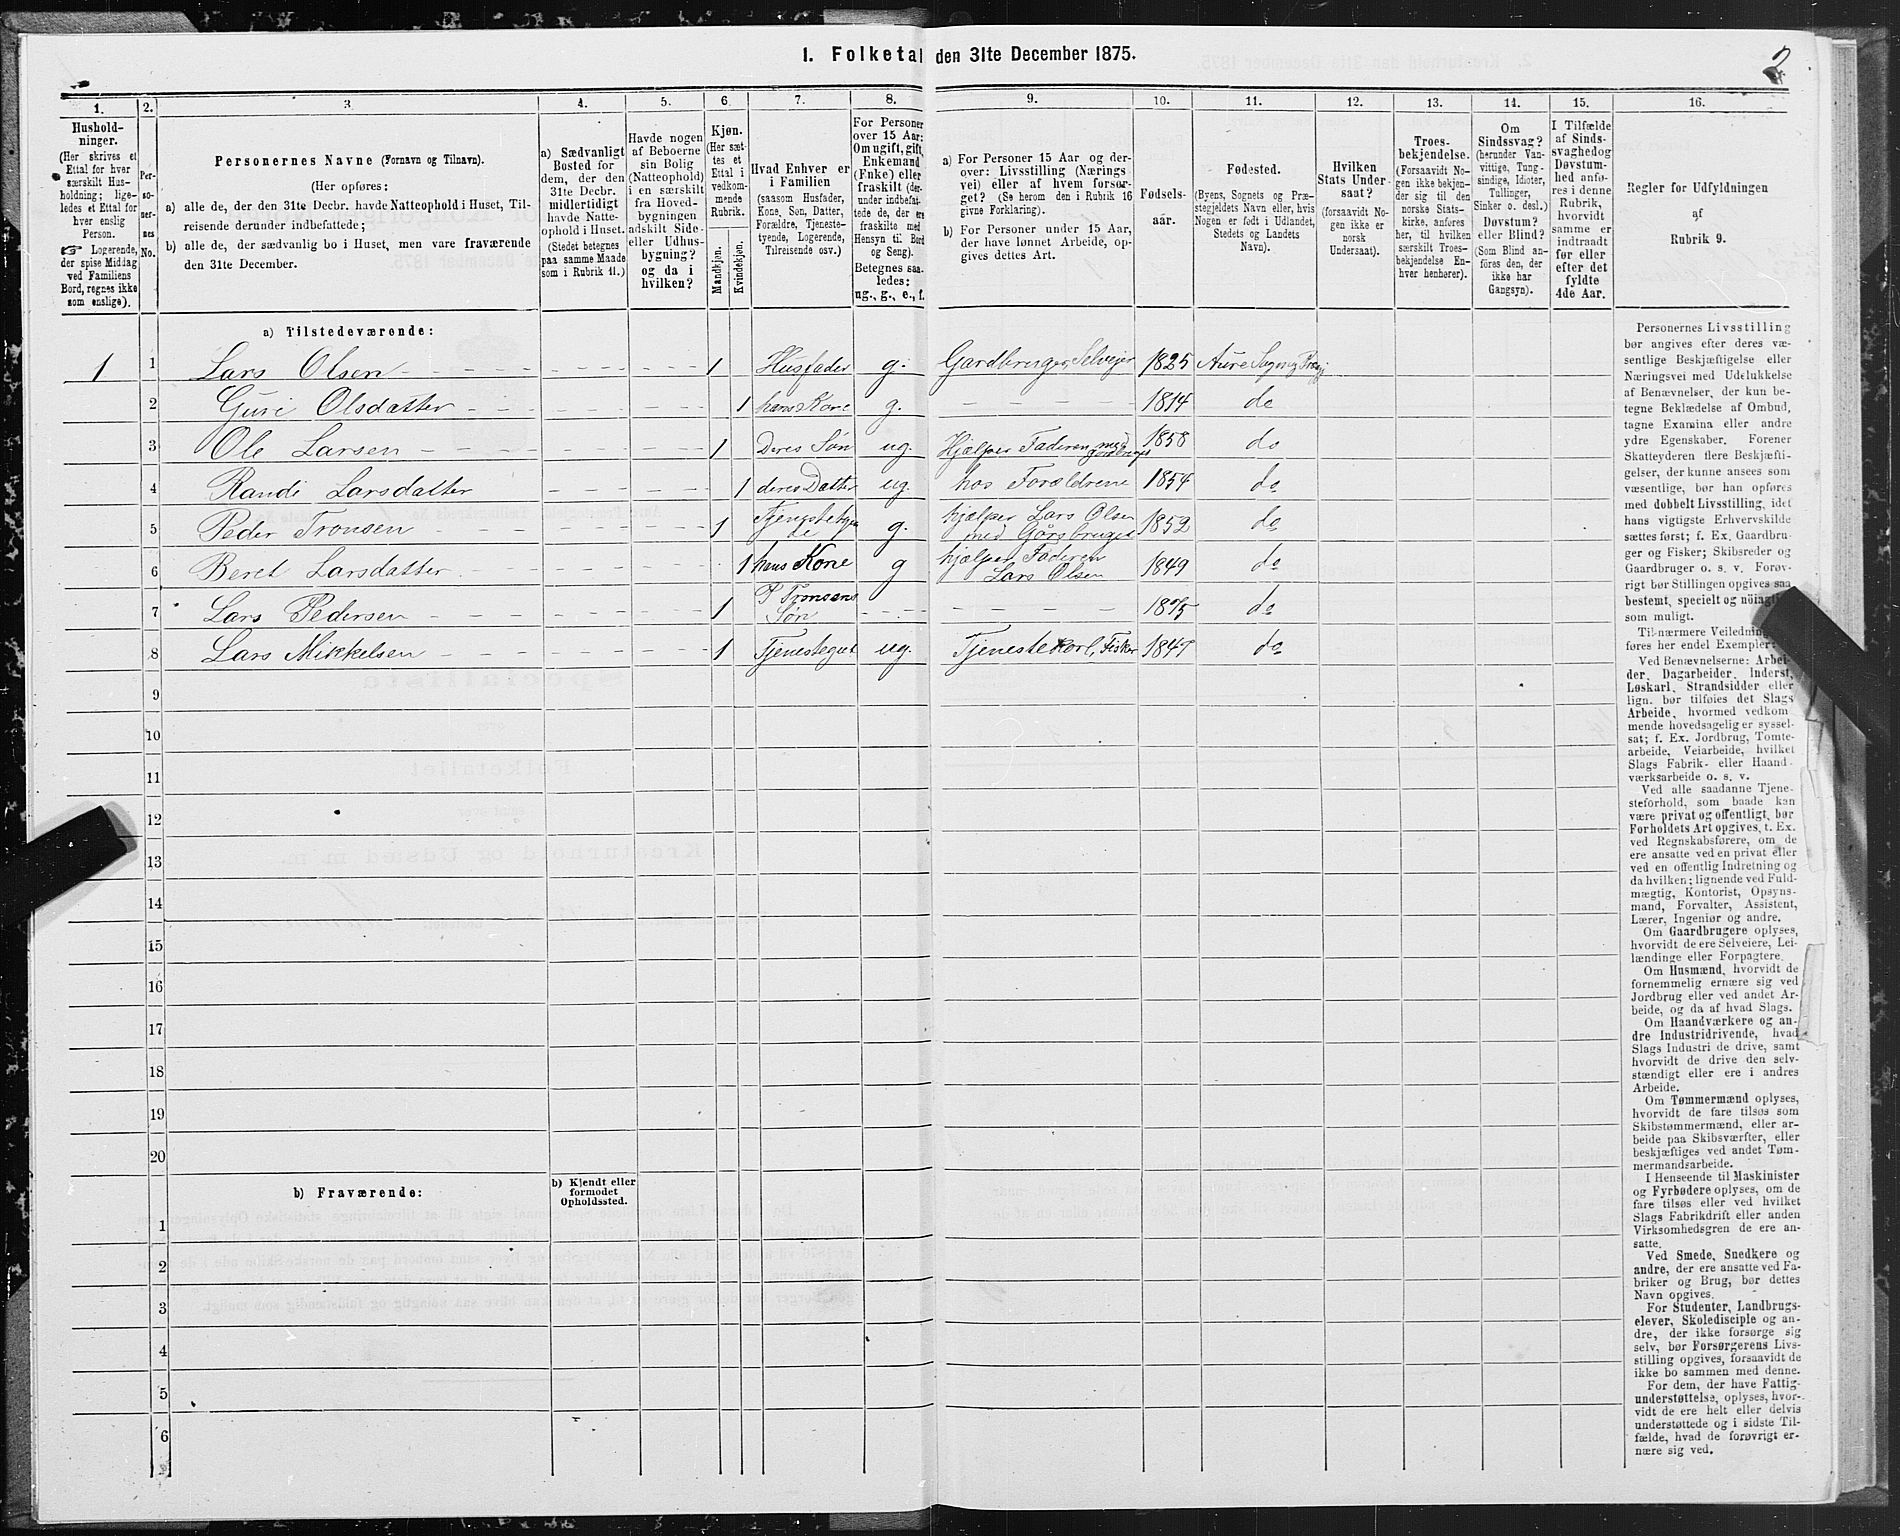 1. Folketal den 31te December 1875.
2
1.
2.
3.
4.
5.
6.
7.
8.
9.
10.
11.
12.
13.
14.
15.
16.
Hushold-
ninger.
(Her skrives et
Ettal for hver
særskilt Hus-
holdning; lige-
ledes et Ettal for
hver enslig
Person.
☞ Logerende,
der spise Middag
ved Familiens
Bord, regnes ikke
som enslige).
Per-
so-
ner-
nes
No.
Personernes Navne (Fornavn og Tilnavn).
(Her opføres:
a) alle de, der den 31te Decbr. havde Natteophold i Huset, Til-
reisende derunder indbefattede;
b) alle de, der sædvanlig bo i Huset, men vare fraværende
den 31te December.
a) Sædvanligt
Bosted for
dem, der den
31te Decbr.
midlertidigt
havde Natte-
ophold i Huset.
(Stedet betegnes
paa samme Maade
som i Rubrik 11.)
Havde nogen
af Beboerne
sin Bolig
(Natteophold)
i en særskilt
fra Hoved-
bygningen
adskilt Side-
eller Udhus-
bygning?
og da i
hvilken?
Kjøn.
(Her sæt-
tes et
Ettal i
vedkom-
mende
Rubrik.
Mandkjøn.
Kvindekjøn.
Hvad Enhver er
i Familien
(saasom Husfader,
Kone, Søn, Datter,
Forældre, Tjeneste-
tyende, Logerende,
Tilreisende osv.)
For Personer
over 15 Aar:
Om ugift, gift,
Enkemand
(Enke) eller
fraskilt (der-
under indbefat-
tede de, der ere
fraskilte med
Hensyn til Bord
og Seng).
Betegnes saa-
ledes:
ug., g., e., f.
a) For Personer 15 Aar og der-
over: Livsstilling (Nærings-
vei) eller af hvem forsør-
get? (Se herom den i Rubrik 16
givne Forklaring).
b) For Personer under 15 Aar,
der have lønnet Arbeide, op-
gives dettes Art.
Fødsels-
aar.
Fødested.
(Byens, Sognets og Præ-
stegjeldets Navn eller, hvis
Nogen er født i Udlandet,
Stedets og Landets
Navn).
Hvilken
Stats Under-
saat?
(forsaavidt No-
gen ikke er
norsk
Undersaat).
Troes-
bekjendelse.
(Forsaavidt No-
gen ikke bekjen-
der sig til den
norske Stats-
kirke, anføres
her, til hvilken
særskilt Troes-
bekjendelse En-
hver henhører).
Om
Sindssvag?
(herunder Van-
vittige, Tung-
sindige, Idioter,
Tullinger,
Sinker o. desl.)
Døvstum?
eller Blind?
(Som Blind an-
føres den, der
ikke har
Gangsyn).
I Tilfælde
af Sinds-
svaghed og
Døvstum-
hed anfø-
res i denne
Rubrik,
hvorvidt
samme er
indtraadt
før eller
efter det
fyldte
4de Aar.
Regler for Udfyldningen
af
Rubrik 9.
a) Tilstedeværende:
1 1 Lars Olsen 1 Husfader g. Gardbruger, Selvejer 1825 Aure Sogn og Præstgj
2 Guri Olsdatter 1 hans Kone g. 1814 do
3 Ole Larsen 1 Deres Søn ug. Hjælper Faderen med 1858 do
4 Randi Larsdatter 1 deres Datter ug. hos Forældrene 1854 do
5 Peder Tronsen 1 g. hjælper Lars Olsen 1852 do
med Gårsbruget
6 Beret Larsdatter 1 hans Kone g hjælper Faderen 1849 do
Lars Olsen
7 Lars Pedersen 1 P Tronsens 1875 do
Søn
8 Lars Mikkelsen 1 Tjenestegut ug. Tjenestekarl, Fisker 1847 do
9
10
11
12
13
14
15
16
17
18
19
20
b) Fraværende:
b) Kjendt eller
formodet
Opholdssted.
1
2
3
4
5
6
Personernes Livsstilling
bør angives efter deres væ-
sentlige Beskjæftigelse eller
Næringsvei med Udelukkelse
af Benævnelser, der kun be-
tegne Beklædelse af Ombud,
tagne Examina eller andre
ydre Egenskaber. Forener
Skatteyderen flere Beskjæfti-
gelser, der kunne ansees som
væsentlige, bør han opføres
med dobbelt Livsstilling, idet
hans vigtigste Erhvervskilde
sættes først; f. Ex. Gaardbru-
ger og Fisker; Skibsreder og
Gaardbruger o. s. v. Forøv-
rigt bør Stillingen opgives saa
bestemt, specielt og nøiagtig
som muligt.
Til nærmere Veiledning
føres her endel Exempler:
Ved Benævnelserne: Arbei-
der, Dagarbeider, Inderst,
Løskarl, Strandsidder eller
lign. bør tilføies det Slags
Arbeide, hvormed vedkom
mende hovedsagelig er syssel-
sat; f. Ex. Jordbrug, Tomte-
arbeide, Veiarbeide, hvilket
Slags Fabrik- eller Haand
værksarbeide o. s. v.
Ved alle saadanne Tjene-
steforhold, som baade kan
være privat og offentligt, bør
Forholdets Art opgives, t. Ex.
ved Regnskabsførere, om de
ere ansatte ved en privat eller
ved en offentlig Indretning og
da hvilken; lignende ved Fuld-
mægtig, Kontorist, Opsyns-
mand, Forvalter, Assistent,
Lærer, Ingeniør og andre.
Om Gaardbrugere oplyses,
hvorvidt de ere Selveiere, Lei-
lændinge eller Forpagtere.
Om Husmænd, hvorvidt de
fornemmelig ernære sig ved
Jordbrug eller ved andet Ar-
beide, og da af hvad Slags.
Om Haandværkere og an-
dre Industridrivende, hvad
Slags Industri de drive, samt
hvorvidt de drive den selv-
stændigt eller ere i andres
Arbeide.
Om Tømmermænd oplyses,
hvorvidt de fare tilsøs som
Skibstømmermænd, eller ar-
beide paa Skibsværfter, eller
beskjæftiges ved andet Tøm-
mermandsarbeide.
I Henseende til Maskinister
og Fyrbødere oplyses, om de
fare tilsøs eller ved hvilket
Slags Fabrikdrift eller anden
Virksomhedsgren de ere an-
satte.
Ved Smede, Snedkere og
andre, der ere ansatte ved Fa-
briker og Brug, bør dettes
Navn opgives.
For Studenter, Landbrugs-
elever, Skoledisciple og an-
dre, der ikke forsørge sig
selv, bør Forsørgerens Livs-
stilling opgives, forsaavidt de
ikke bo sammen med denne.
For dem, der have Fattig-
understøttelse, oplyses, hvor-
vidt de ere helt eller delvis
understøttede og i sidste Til-
fælde, hvad de forøvrigt er-
nære sig ved.